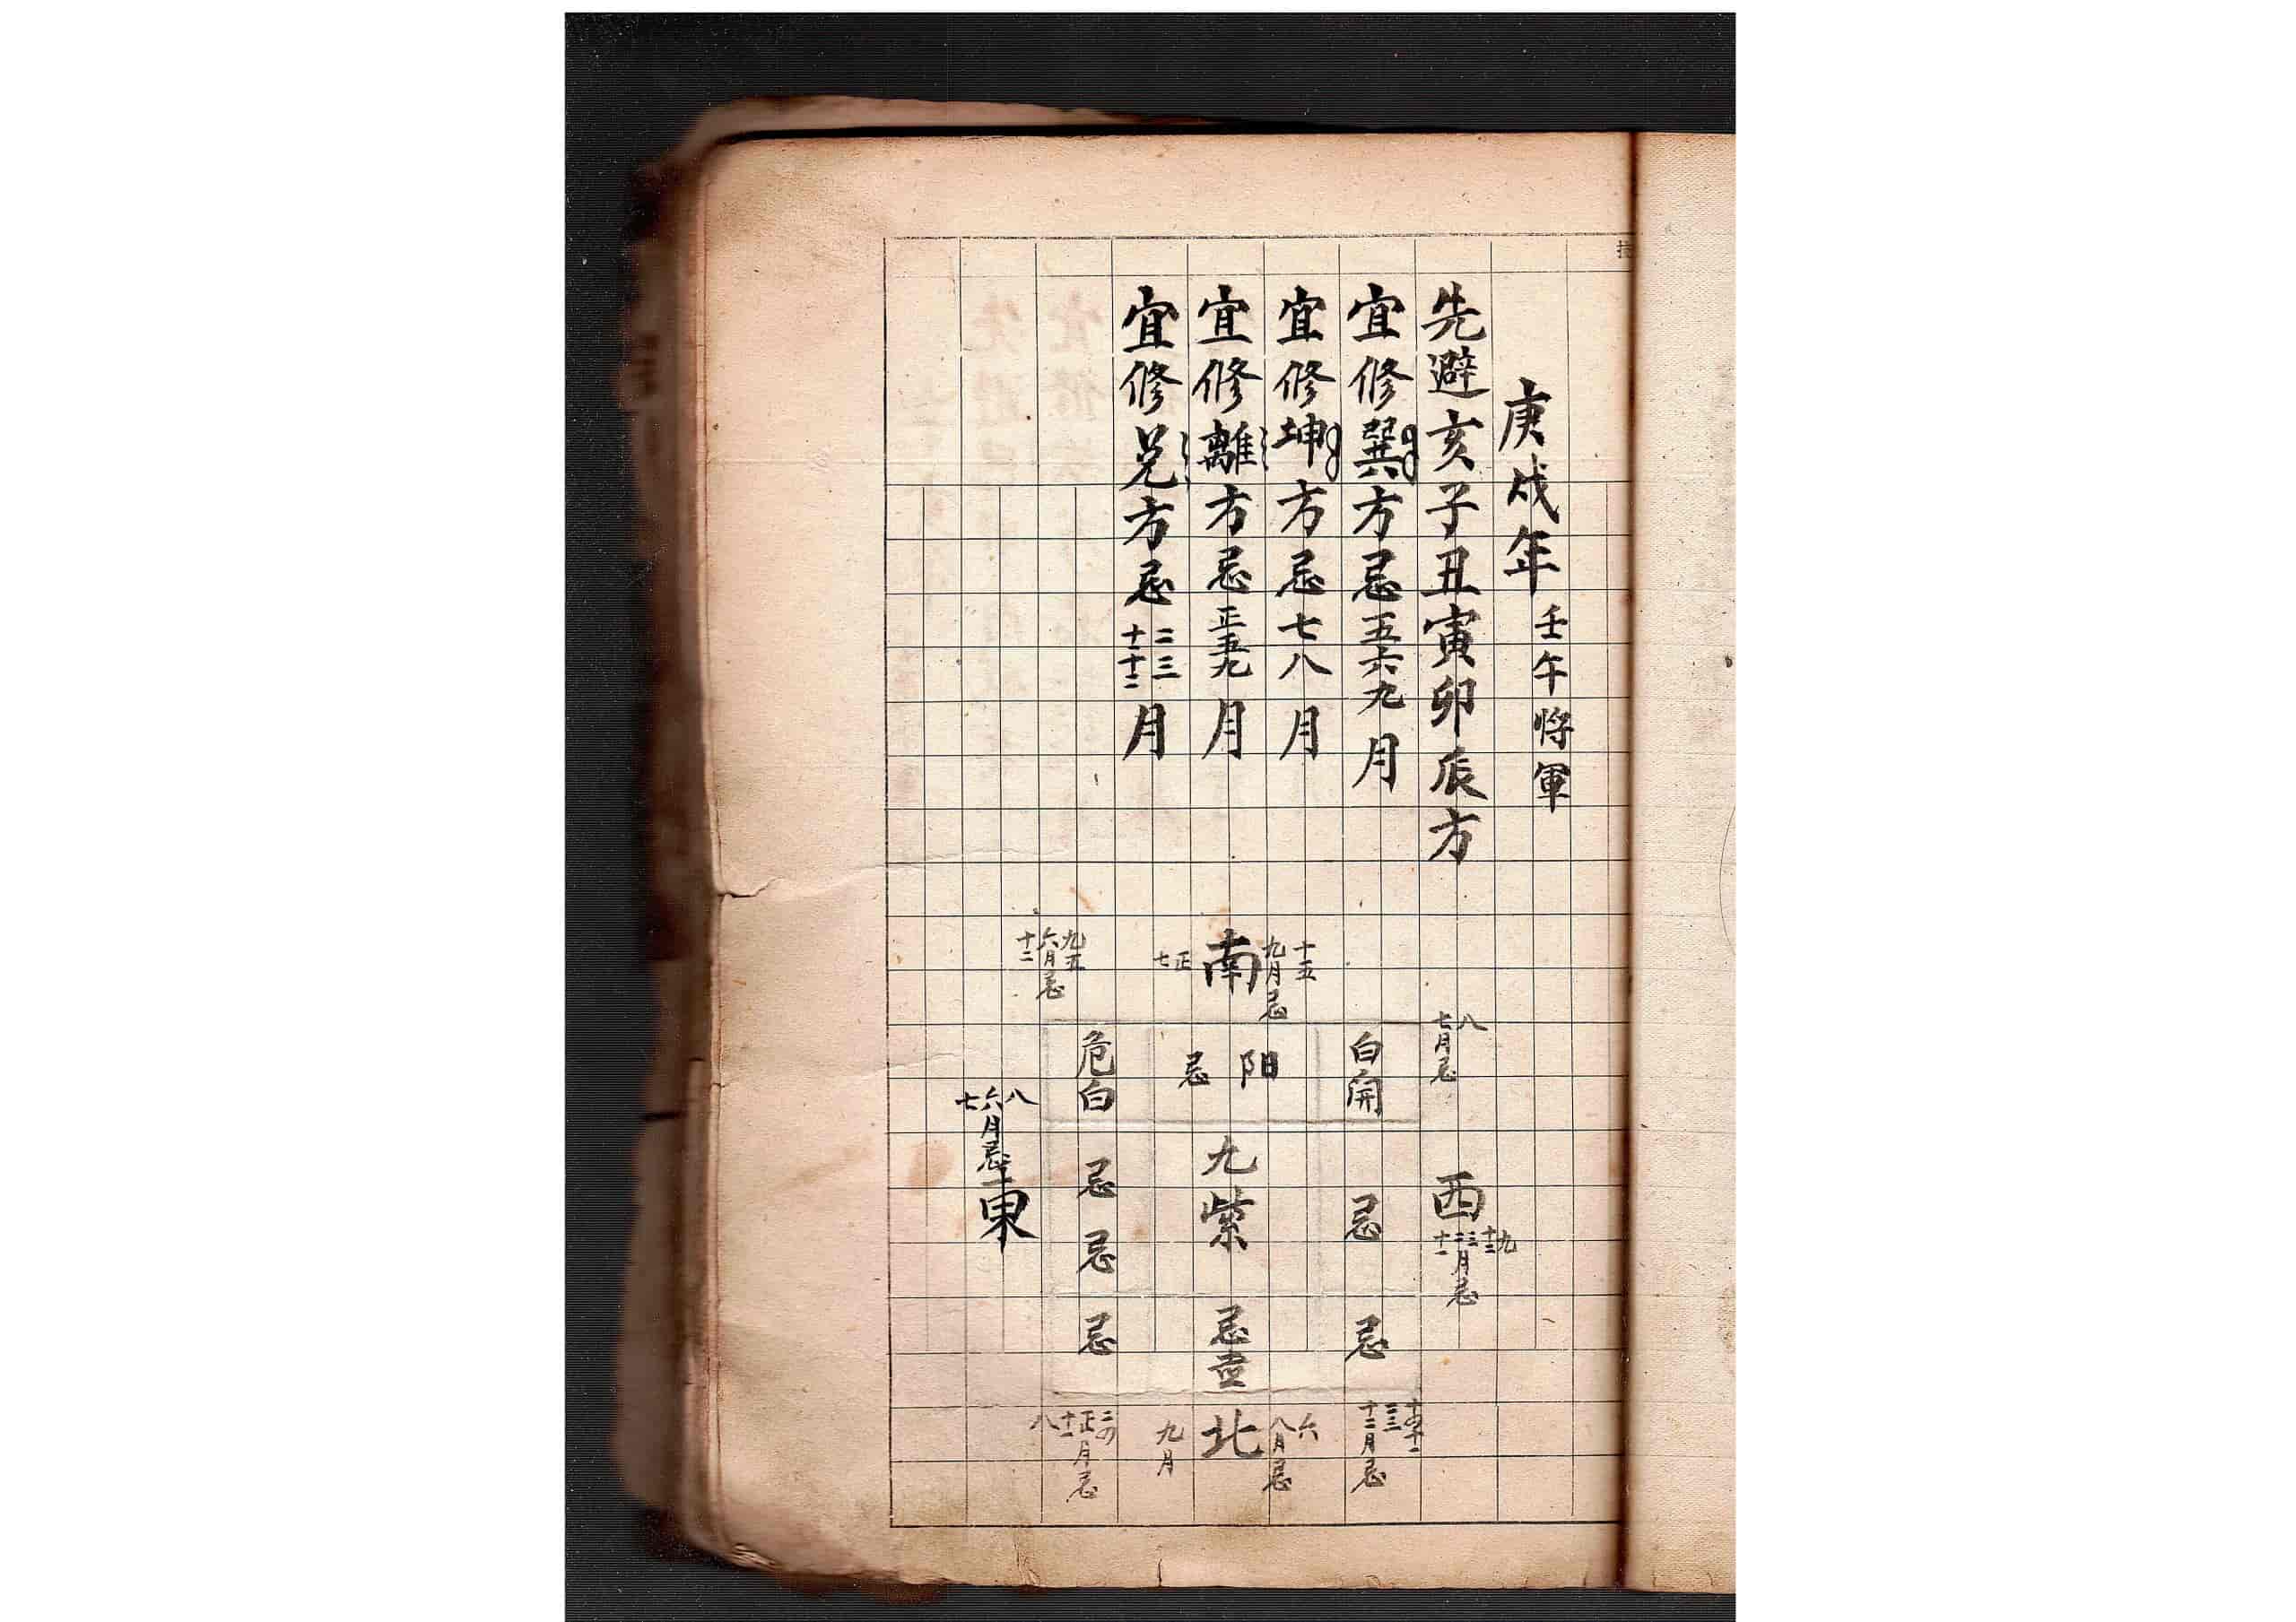 庚戌年
壬午将軍
先避亥子丑寅卯辰方
宜修巽方忌五六九月
宜修坤方忌七八月
宜修離方忌正五九月
宜修兑方忌二三十一十二月
十五
九月忌
南
正
七
九五
六月忌
十二
八
七月忌
白開
阳
忌
危白
八
六月忌
七
東
西
九
十二
二三月忌
十一
九紫
忌
忌
忌
忌
忌
忌
六
八月忌
北
九月
二三
十二月忌
正月忌
十一
八